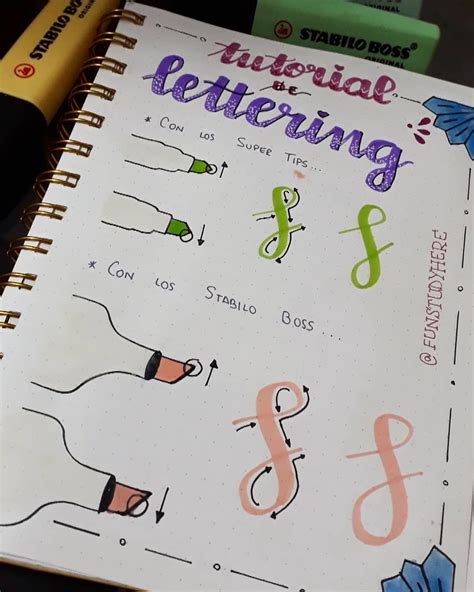 STABILO BOSS
STABILO BOSS
ORIGINAL
tutorial
DE
lettering
* CON LOS SUPER TIPS...
* CON LOS STABILO BOSS...
@FUNSTUDYHERE